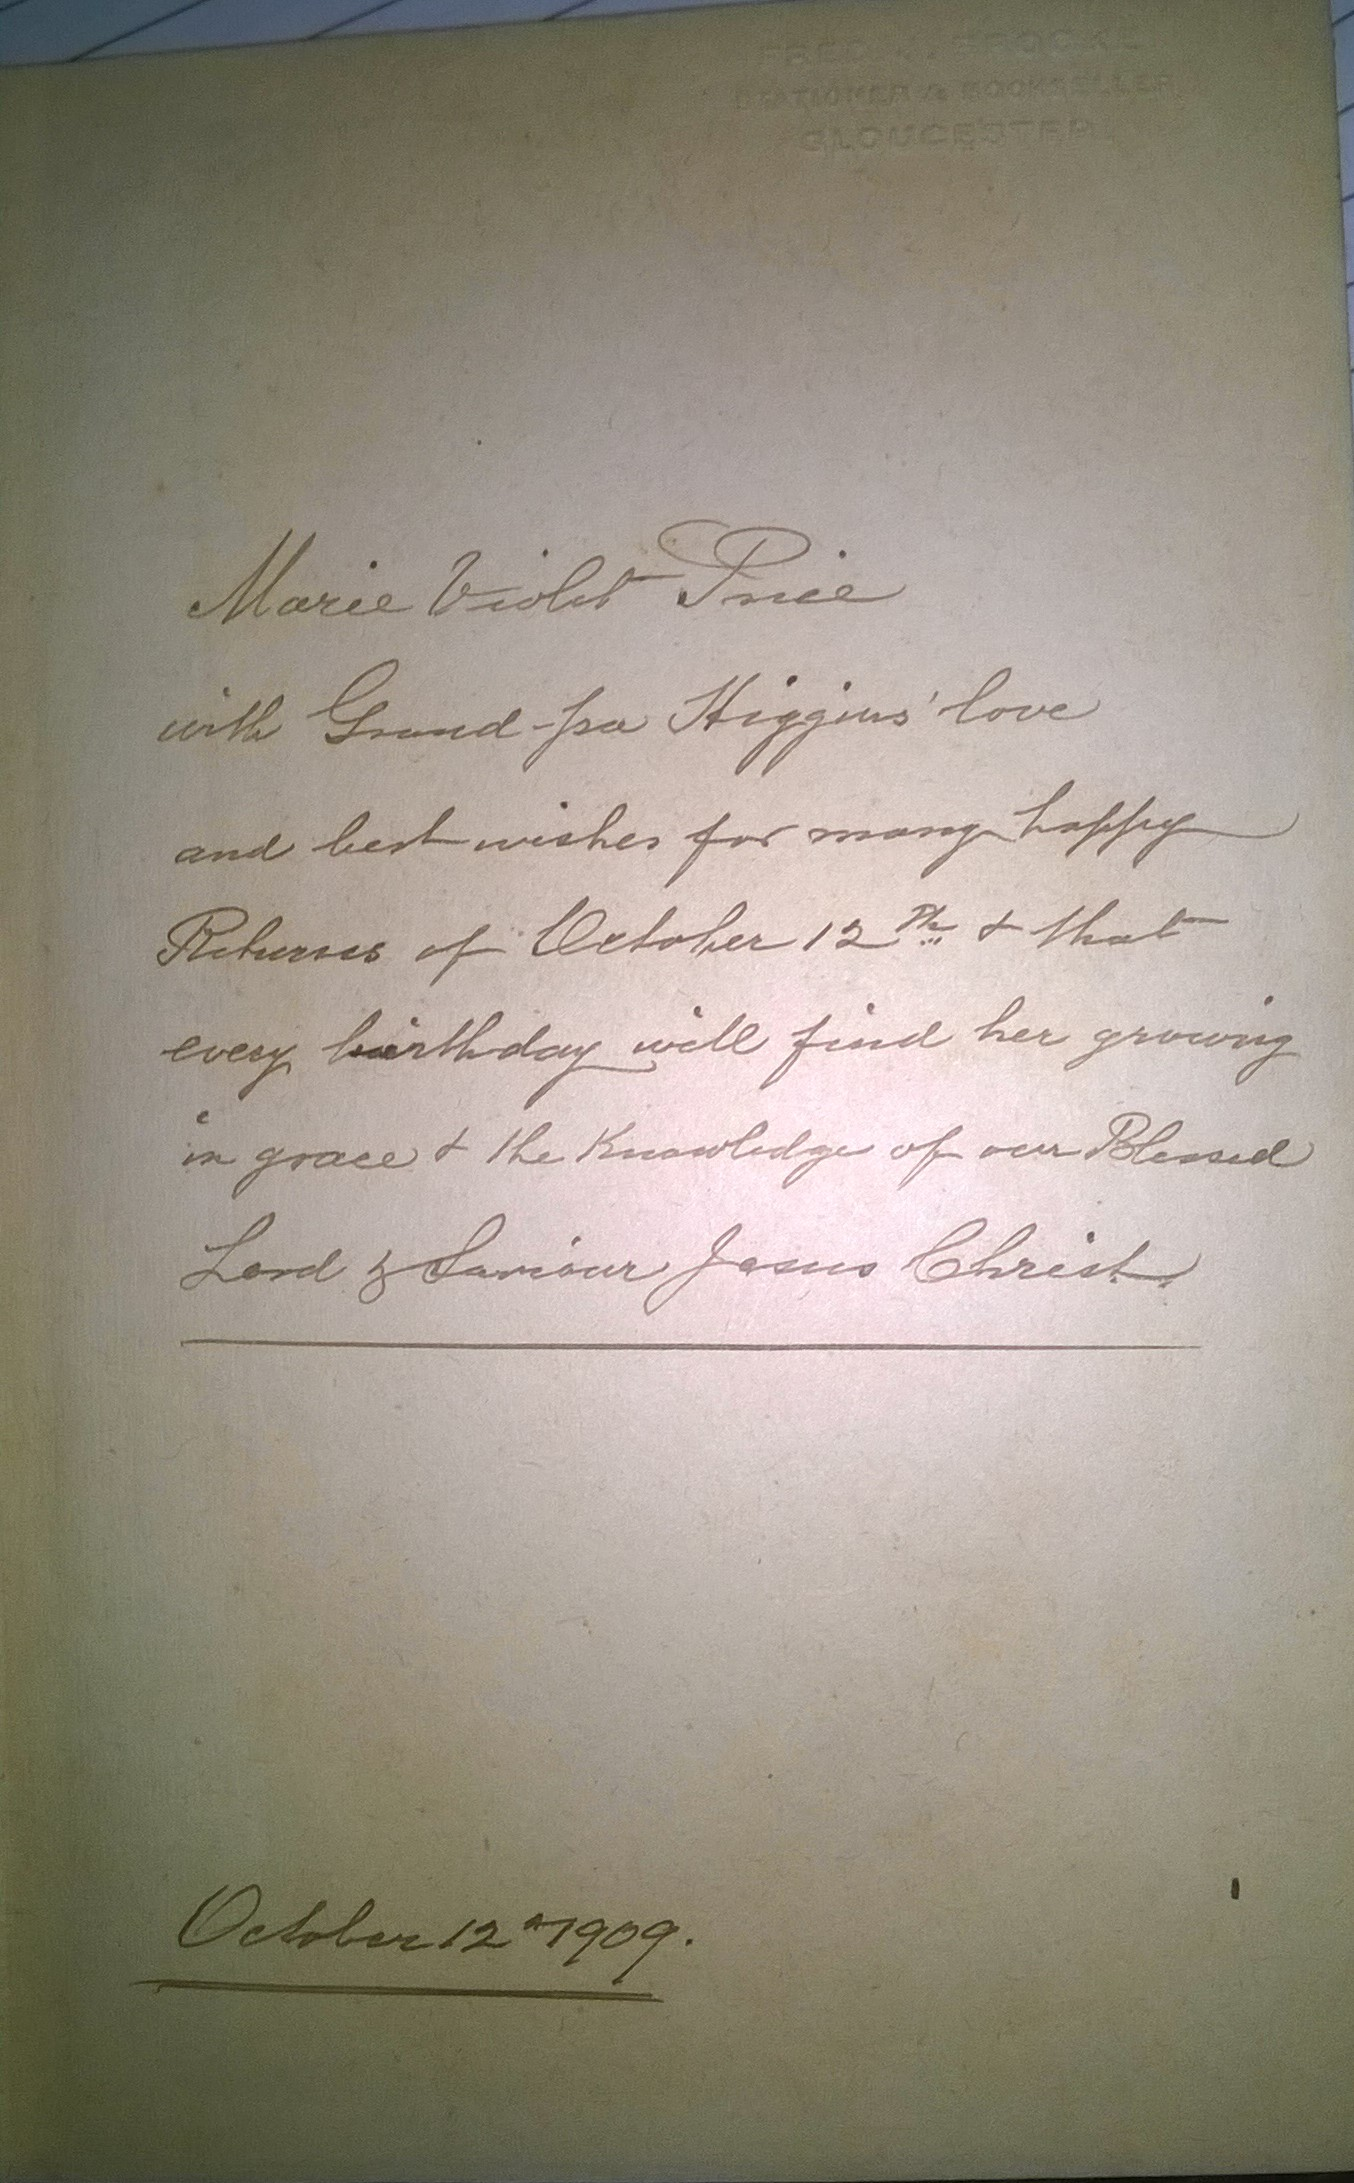 FRED BROOKE
STATIONER & BOOKSELLER
GLOUCESTER
Marie Violet Price
with Grand-pa Higgins' love
and best wishes for many happy
Returns of October 12th & that
every birthday will find her growing
in grace & the Knowledge of our Blessed
Lord & Saviour Jesus Christ.
October 12th 1909.